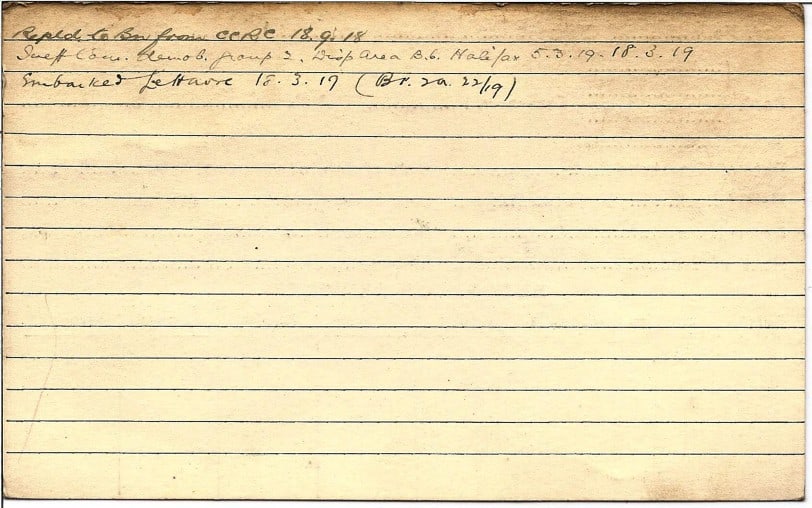 to Bn from CCRC 18.9.18
Demob. group 2. Disp Area B.6. Halifax 5.3.19. 18.3.19
Embarked LeHavre 18.3.19 (Br. 2a. 22/19)